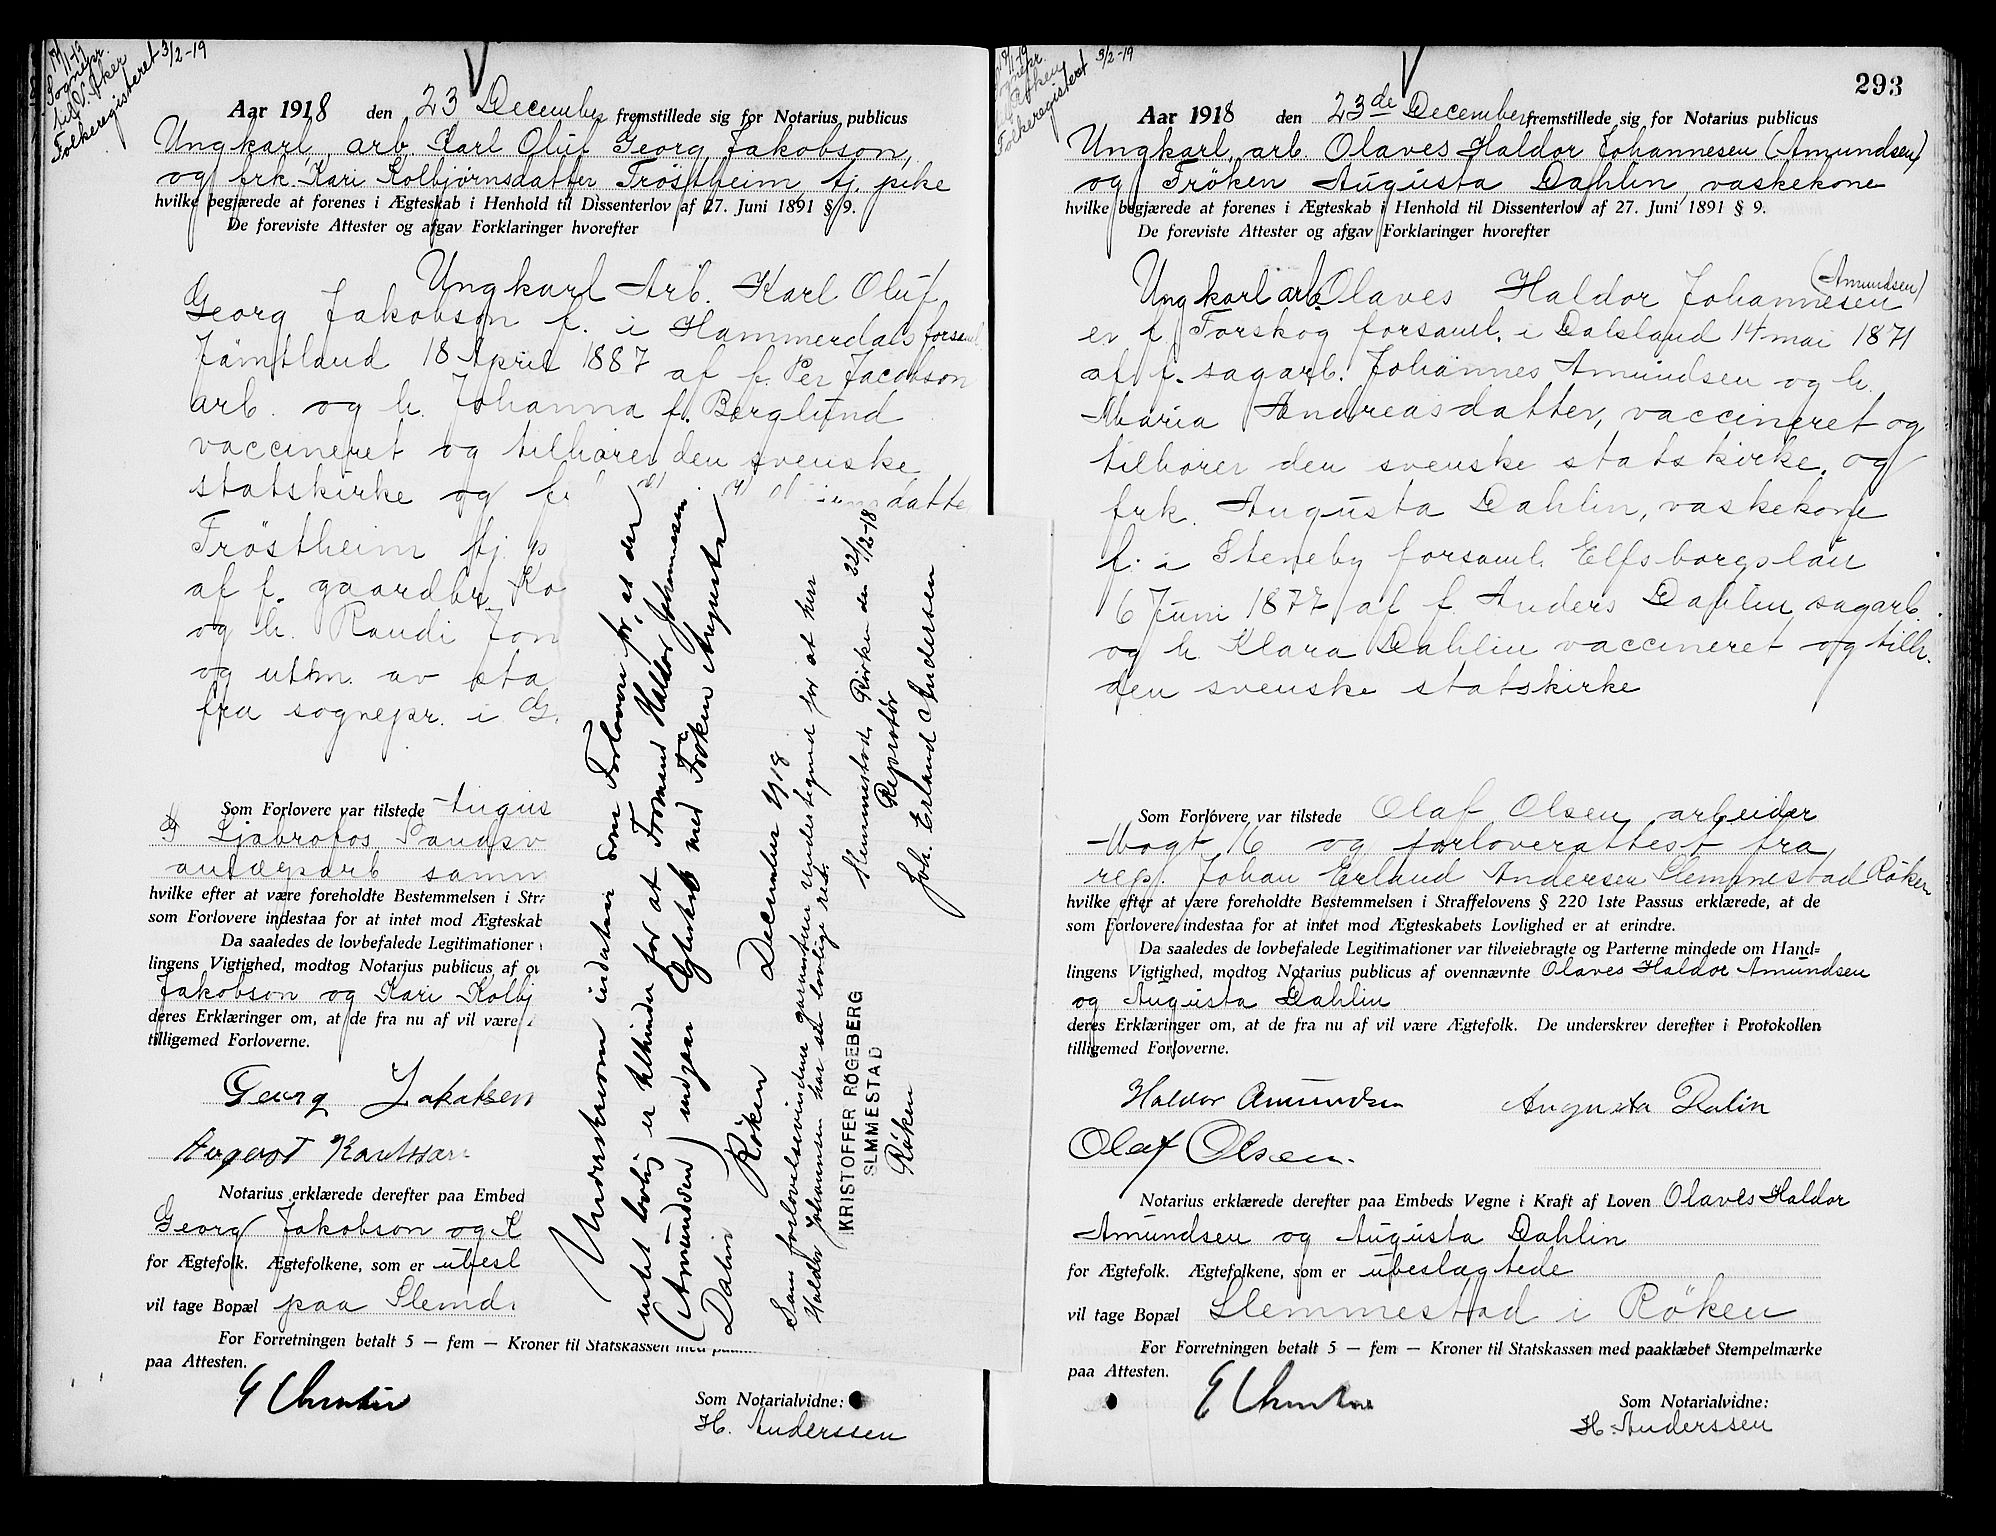 17/1-19
Sognepr.
til V. Aker
Folkeregisteret 3/2-19
Aar 1918 den 23 December fremstillede sig for Notarius publicus
Ungkarl, arb. Karl Oluf Georg Jakobson,
og frk. Kari Kolbjørnsdatter Tröstheim, tj. pike
hvilke begjærede at forenes i Ægteskab i Henhold til Dissenterlov af 27. Juni 1891 § 9.
De foreviste Attester og afgav Forklaringer hvorefter
Ungkarl Arb. Karl Oluf
Georg Jakobson f. i Hammerdals forsaml.
Jämtland 18 April 1887 af f. Per Jacobson
arb. og h. Johanna f. Berglund
vaccineret og tilhører den svenske
statskirke og
Tröstheim tj. p
af f. gaardbr. Ko
og h. Randi Jon
og utm. av sta
fra sognepr. i G.
Som Forlovere var tilstede Augus
Ljabrofos
anlægsarb samm
hvilke efter at være foreholdte Bestemmelsen i Stra
som Forlovere indestaa for at intet mod Ægteskab
Da saaledes de lovbefalede Legitimationer
lingens Vigtighed, modtog Notarius publicus af ov
Jakobson og Kari Kolbj
deres Erklæringer om, at de fra nu af vil være
tilligemed Forloverne.
Georg Jakobsen
August
Notarius erklærede derefter paa Embed
Georg Jakobson og K
for Ægtefolk. Ægtefolkene, som er ubesl
vil tage Bopæl paa Slemd
For Forretningen betalt 5 — fem — Kroner til Statskassen med paa
paa Attesten.
Som Notarialvidne:
H. Anderssen
Underskreven indestaar som Forlovere for, at der
intet lovlig er tilhinder for at Formand Haldor Johannessen
(Amundsen) indgaar Egteskab med Frøken Augusta
Dalin Røken December 1918
Som forlovelsesvindne garanterer undertegned for at herr
Haldor Johannsen har sit lovlige ret.
KRISTOFFER RØGEBERG
SLMMESTAD
Røken
Slemmestad, Røiken den 22/12-18
Reprstør
Joh. Erland Andersen
293
Sognepr.
Røken
Folkeregisteret 3/2-19
Aar 1918 den 23de December fremstillede sig for Notarius publicus
Ungkarl, arb. Olaves Haldor Johannesen (Amundsen)
og Fröken Augusta Dahlin, vaskekone
hvilke begjærede at forenes i Ægteskab i Henhold til Dissenterlov af 27. Juni 1891 § 9.
De foreviste Attester og afgav Forklaringer hvorefter
Ungkarl arb. Olaves Haldor Johannesen (Amundsen)
er f. Torskog forsaml. i Dalsland 14 mai 1871
af f. sagarb. Johannes Amundsen og h.
Maria Andreasdatter, vaccineret og
tilhører den svenske statskirke, og
frk. Augusta Dahlin, vaskekone
f. i Steneby forsaml. Elfsborgslän
6 Juni 1877 af f. Anders Dahlin sagarb.
og h. Klara Dahlin vaccineret og tilh.
den svenske statskirke
Som Forlovere var tilstede Olaf Olsen arbeider
Vogt 16 og forloverattest fra
rep. Johan Erland Andersen Slemmestad Røken
hvilke efter at være foreholdte Bestemmelsen i Straffelovens § 220 1ste Passus erklærede, at de
som Forlovere indestaa for at intet mod Ægteskabets Lovlighed er at erindre.
Da saaledes de lovbefalede Legitimationer var tilveiebragte og Parterne mindede om Hand=
lingens Vigtighed, modtog Notarius publicus af ovennævnte Olaves Haldor Amundsen
og Augusta Dahlin
deres Erklæringer om, at de fra nu af vil være Ægtefolk. De underskrev derefter i Protokollen
tilligemed Forloverne.
Haldor Amundsen Augusta Dalin
Olaf Olsen.
Notarius erklærede derefter paa Embeds Vegne i Kraft af Loven Olaves Haldor
Amundsen og Augusta Dahlin
for Ægtefolk. Ægtefolkene, som er ubeslægtede
vil tage Bopæl Slemmestad i Röken
For Forretningen betalt 5 — fem — Kroner til Statskassen med paaklæbet Stempelmærke
paa Attesten.
Som Notarialvidne:
H. Anderssen